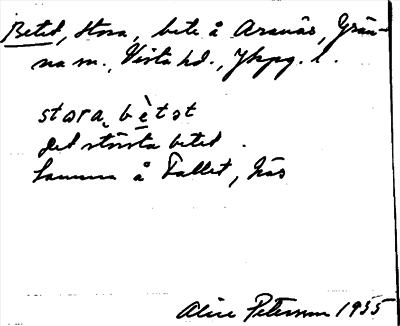 Betet, Stora, bete å Aranäs, Grän-
na m., Vista hd., Jkpg. l.
stora, bètət
det största betet.
samma å Fallet, Näs
Alice Petersson 1935